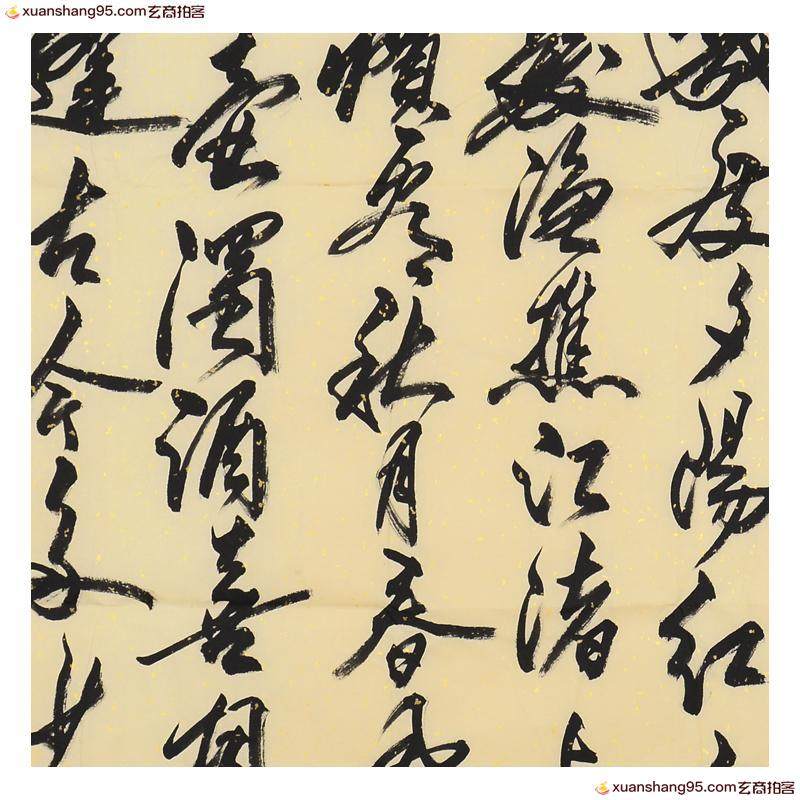 xuanshang95.com玄商拍客
xuanshang95.com玄商拍客
幾度夕陽紅
髮漁樵江渚上
慣看秋月春風
壺濁酒喜相
逢古今多少
xuanshang95.com玄商拍客